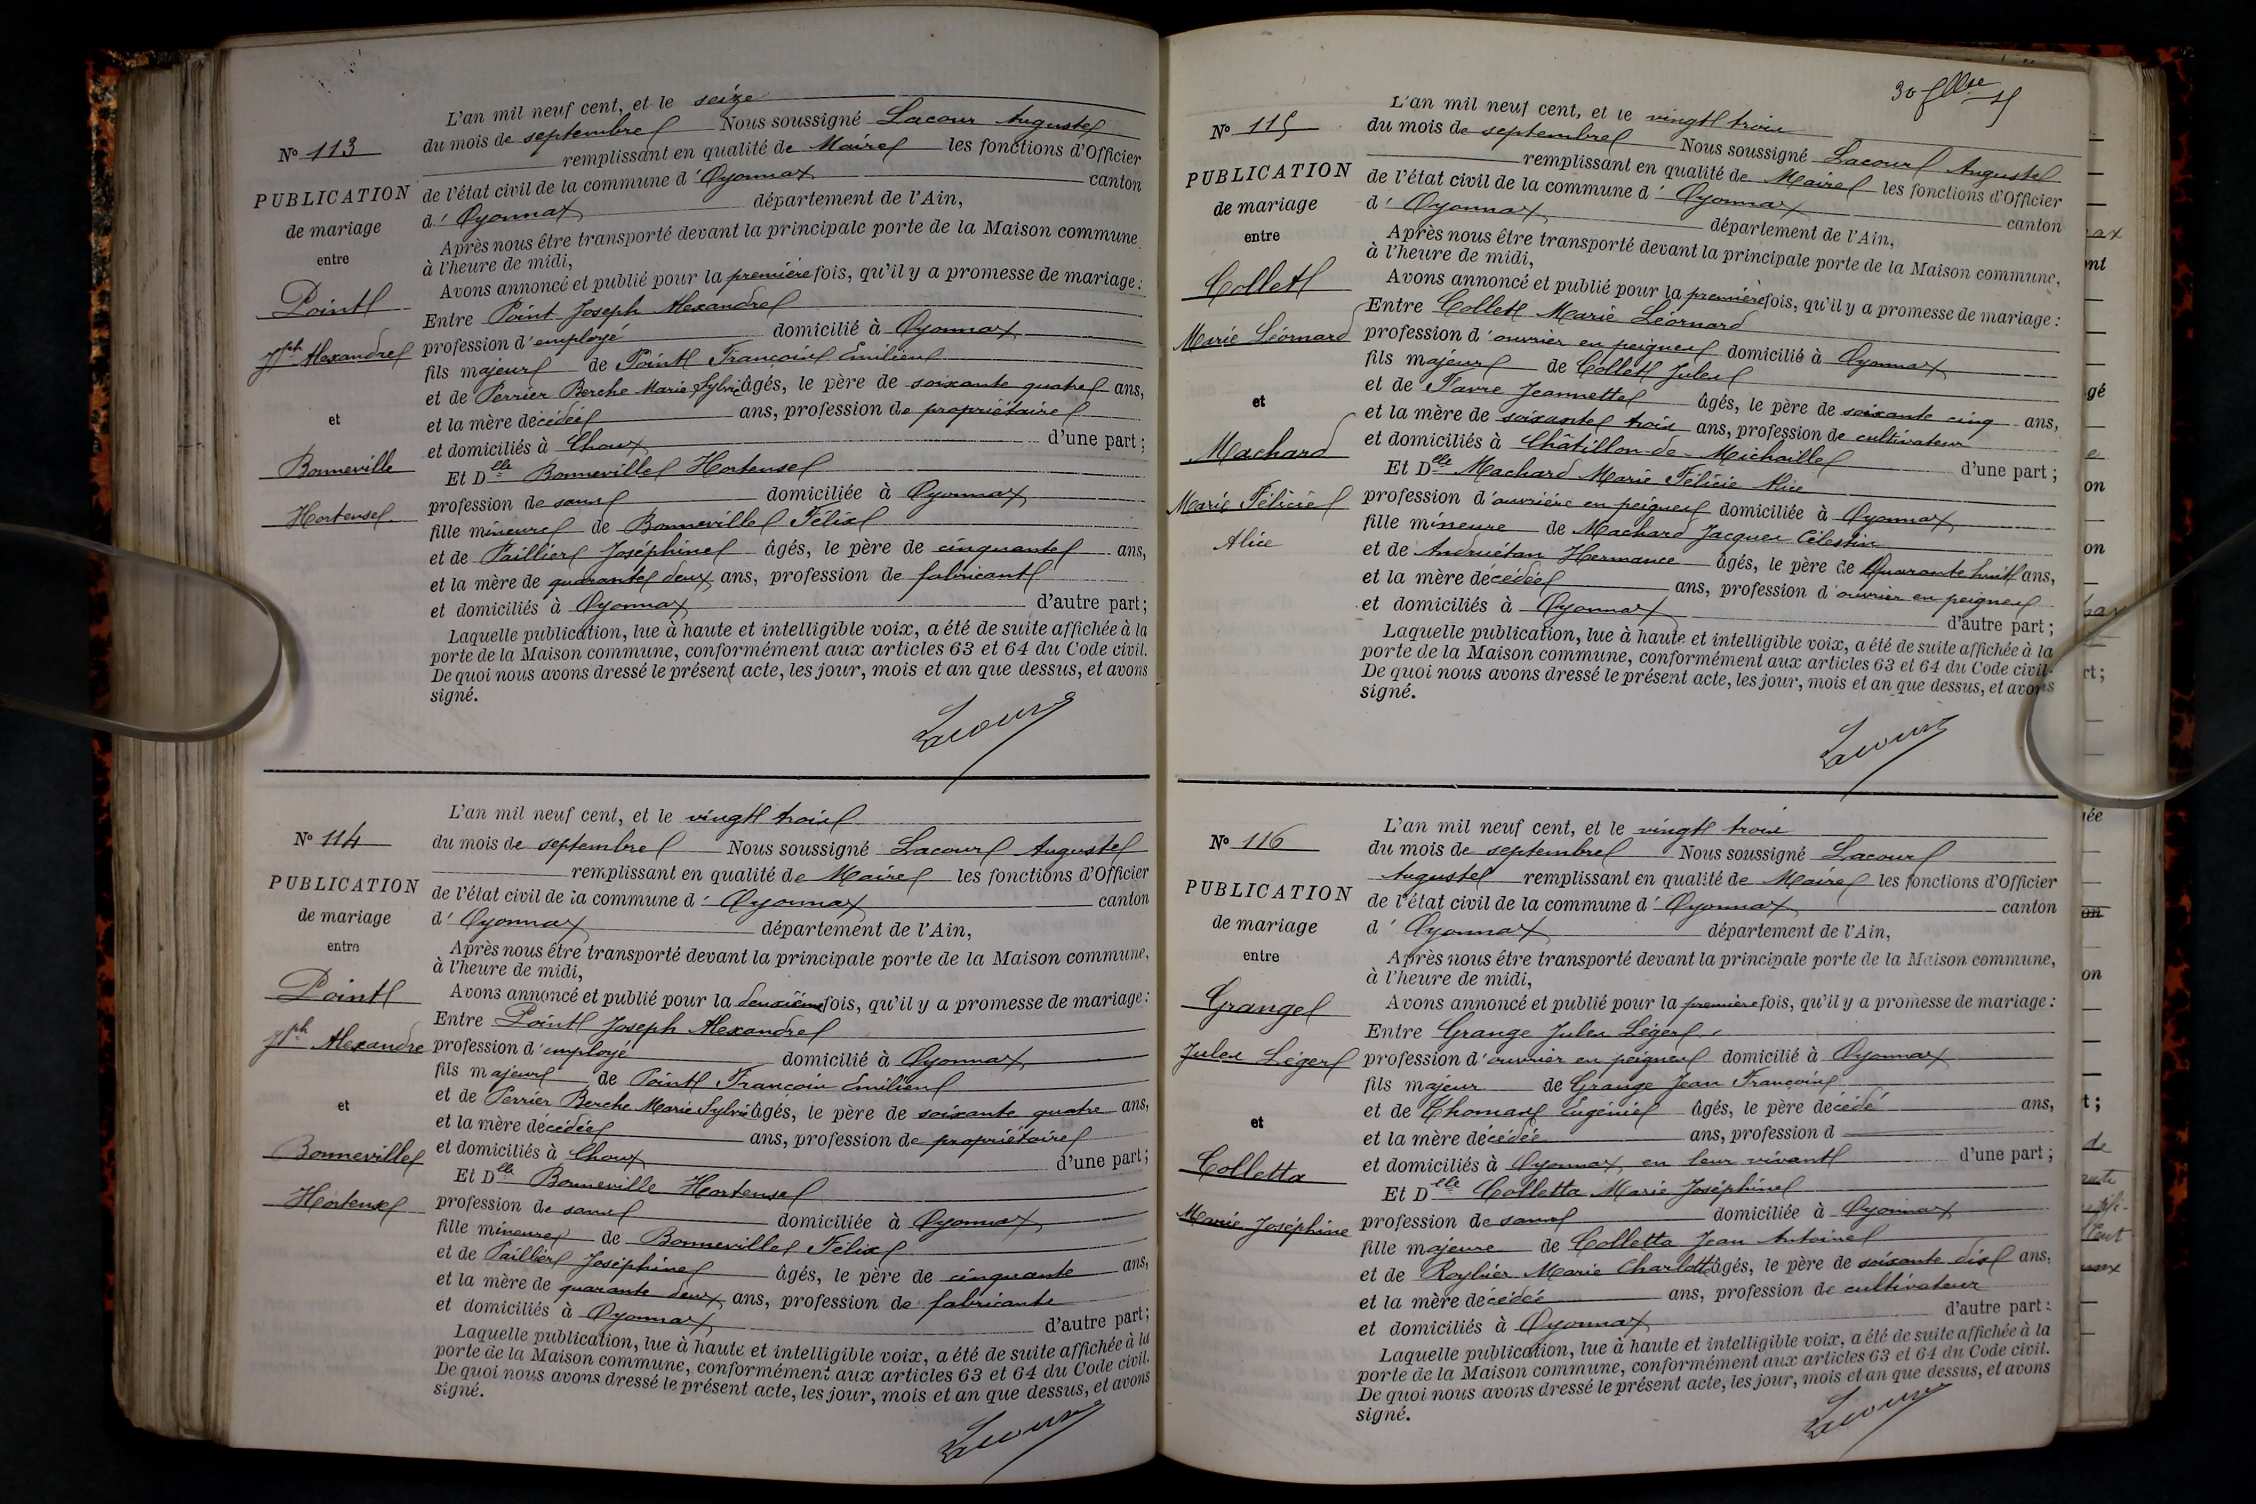 L'an mil neuf cent, et le seize
du mois de septembre Nous soussigné Lacour Auguste
Nº 113
remplissant en qualité de Maire les fonctions d'Officier
PUBLICATION
de l'état civil de la commune d'Oyonnax canton
d'Oyonnax département de l'Ain,
de mariage
Après nous être transporté devant la principale porte de la Maison commune
entre
à l'heure de midi,
Avons annoncé et publié pour la première fois, qu'il y a promesse de mariage :
Point
Entre Point Joseph Alexandre
Jph Alexandre
profession d'employé domicilié à Oyonnax
fils majeur de Point François Emilien
et de Perrier Berche Marie Sylvie âgés, le père de soixante quatre ans,
et
et la mère décédée ans, profession de propriétaire
et domiciliés à Choux d'une part ;
Bonneville
Et Dlle Bonneville Hortense
Hortense
profession de sans domiciliée à Oyonnax
fille mineure de Bonneville Félix
et de Paillier Joséphine âgés, le père de cinquante ans,
et la mère de quarante deux ans, profession de fabricant
et domiciliés à Oyonnax d'autre part ;
Laquelle publication, lue à haute et intelligible voix, a été de suite affichée à la
porte de la Maison commune, conformément aux articles 63 et 64 du Code civil.
De quoi nous avons dressé le présent acte, les jour, mois et an que dessus, et avons
signé.
Lacour
L'an mil neuf cent, et le vingt trois
Nº 114
du mois de septembre Nous soussigné Lacour Auguste
remplissant en qualité de Maire les fonctions d'Officier
PUBLICATION
de l'état civil de la commune d'Oyonnax canton
de mariage
d'Oyonnax département de l'Ain,
entre
Après nous être transporté devant la principale porte de la Maison commune,
à l'heure de midi,
Point
Avons annoncé et publié pour la deuxième fois, qu'il y a promesse de mariage :
Entre Point Joseph Alexandre
Jph Alexandre
profession d'employé domicilié à Oyonnax
fils majeur de Point François Emilien
et de Perrier Berche Marie Sylvie âgés, le père de soixante quatre ans,
et
et la mère décédée ans, profession de propriétaire
Bonneville
et domiciliés à Choux d'une part ;
Et Dlle Bonneville Hortense
Hortense
profession de sans domiciliée à Oyonnax
fille mineure de Bonneville Félix
et de Paillier Joséphine âgés, le père de cinquante ans,
et la mère de quarante deux ans, profession de fabricants
et domiciliés à Oyonnax d'autre part ;
Laquelle publication, lue à haute et intelligible voix, a été de suite affichée à la
porte de la Maison commune, conformément aux articles 63 et 64 du Code civil.
De quoi nous avons dressé le présent acte, les jour, mois et an que dessus, et avons
signé.
Lacour
L'an mil neuf cent, et le vingt trois
Nº 115
du mois de septembre Nous soussigné Lacour Auguste
remplissant en qualité de Maire les fonctions d'Officier
PUBLICATION
de l'état civil de la commune d'Oyonnax canton
de mariage
d'Oyonnax département de l'Ain,
entre
Après nous être transporté devant la principale porte de la Maison commune,
à l'heure de midi,
Collet
Avons annoncé et publié pour la première fois, qu'il y a promesse de mariage :
Entre Collet Marie Léonard
Marie Léonard
profession d'ouvrier en peignes domicilié à Oyonnax
fils majeur de Collet Jules
et de Favre Jeannette âgés, le père de soixante cinq ans,
et
et la mère de soixante trois ans, profession de cultivateur
Machard
et domiciliés à Châtillon-de-Michaille d'une part ;
Et Dlle Machard Marie Félicie Alice
Marie Félicie
profession d'ouvrière en peignes domiciliée à Oyonnax
Alice
fille mineure de Machard Jacques Célestin
et de Andruétan Hermance âgés, le père de Quarante huit ans,
et la mère décédée ans, profession d'ouvrier en peignes
et domiciliés à Oyonnax d'autre part ;
Laquelle publication, lue à haute et intelligible voix, a été de suite affichée à la
porte de la Maison commune, conformément aux articles 63 et 64 du Code civil.
De quoi nous avons dressé le présent acte, les jour, mois et an que dessus, et avons
signé.
Lacour
L'an mil neuf cent, et le vingt trois
Nº 116
du mois de septembre Nous soussigné Lacour
Auguste remplissant en qualité de Maire les fonctions d'Officier
PUBLICATION
de l'état civil de la commune d'Oyonnax canton
de mariage
d'Oyonnax département de l'Ain,
entre
Après nous être transporté devant la principale porte de la Maison commune,
à l'heure de midi,
Grange
Avons annoncé et publié pour la première fois, qu'il y a promesse de mariage :
Entre Grange Jules Léger
Jules Léger
profession d'ouvrier en peignes domicilié à Oyonnax
fils majeur de Grange Jean François
et de Thomas Eugénie âgés, le père décédé ans,
et
et la mère décédée ans, profession d
Colletta
et domiciliés à Oyonnax en leur vivant d'une part ;
Et Dlle Colletta Marie Joséphine
Marie Joséphine
profession de sans domiciliée à Oyonnax
fille majeure de Colletta Jean Antoine
et de Roylier Marie Charlotte âgés, le père de soixante dix ans,
et la mère décédée ans, profession de cultivateur
et domiciliés à Oyonnax d'autre part :
Laquelle publication, lue à haute et intelligible voix, a été de suite affichée à la
porte de la Maison commune, conformément aux articles 63 et 64 du Code civil.
De quoi nous avons dressé le présent acte, les jour, mois et an que dessus, et avons
signé.
Lacour